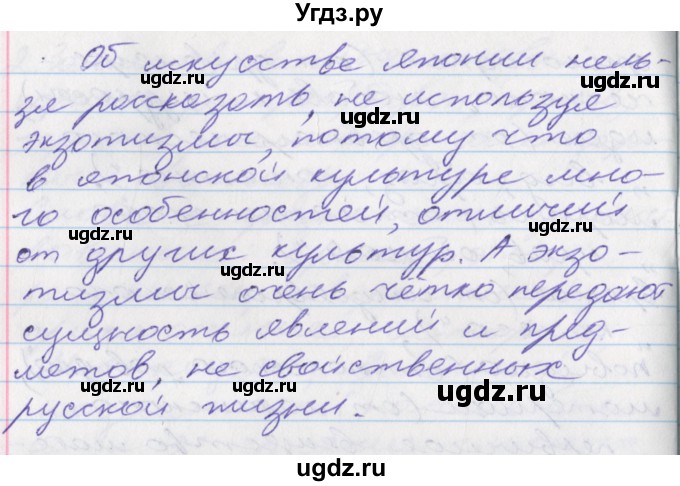 Угдз.ру
Об искусстве Японии нель-
зя рассказать, не используя
экзотизмы, потому что
в японской культуре мно-
го особенностей, отличий
от других культур. А экзо-
тизмы очень четко передают
сущность явлений и пред-
метов, не свойственных
русской жизни.
ugdz.ru
ugdz.ru
ugdz.ru
ugdz.ru
ugdz.ru
ugdz.ru
ugdz.ru
ugdz.ru
ugdz.ru
ugdz.ru